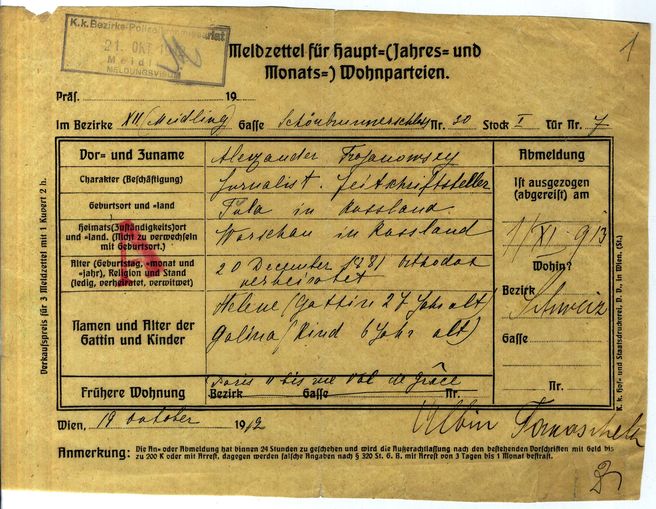 K.k. Bezirks-Polizei
21. OKT
Meidl
MELDUNGSVISUM
1
Meldzettel für Haupt-(Jahres- und
Monats-) Wohnparteien.
Präs. 19
Im Bezirke XII (Meidling) Gasse Schönbrunnerschloss Nr. 30 Stock I Tür Nr. 7
Vor- und Zuname Alexander Trojanowsky
Charakter (Beschäftigung) Jurnalist. Zeitschriftsteller
Geburtsort und -land Tula in Russland
Heimats(Zuständigkeits)ort
und -land. (Nicht zu verwechseln
mit Geburtsort.) Warschau in Russland
Alter (Geburtstag, -monat und
-jahr), Religion und Stand
(ledig, verheiratet, verwitwet) 20 December 1881 Orthodox
verheiratet
Namen und Alter der
Gattin und Kinder Helene (Gattin 27 Jahr alt)
Galina (Kind 6 Jahr alt)
Frühere Wohnung Paris 11 bis rue Val de Grâce
Bezirk Gasse Nr.
Abmeldung
Ist ausgezogen
(abgereist) am
1/XI 913
Wohin?
Bezirk Schweiz
Gasse
Nr.
Wien, 19 October 1912
Albin Tomaschek
Anmerkung: Die An- oder Abmeldung hat binnen 24 Stunden zu geschehen und wird die Außerachtlassung nach den bestehenden Vorschriften mit Geld bis
zu 200 K oder mit Arrest, dagegen werden falsche Angaben nach § 320 St. G. B. mit Arrest von 3 Tagen bis 1 Monat bestraft.
Verkaufspreis für 3 Meldzettel mit 1 Kuvert 2 h.
K. k. Hof- und Staatsdruckerei, D. D., in Wien. (St.)
A